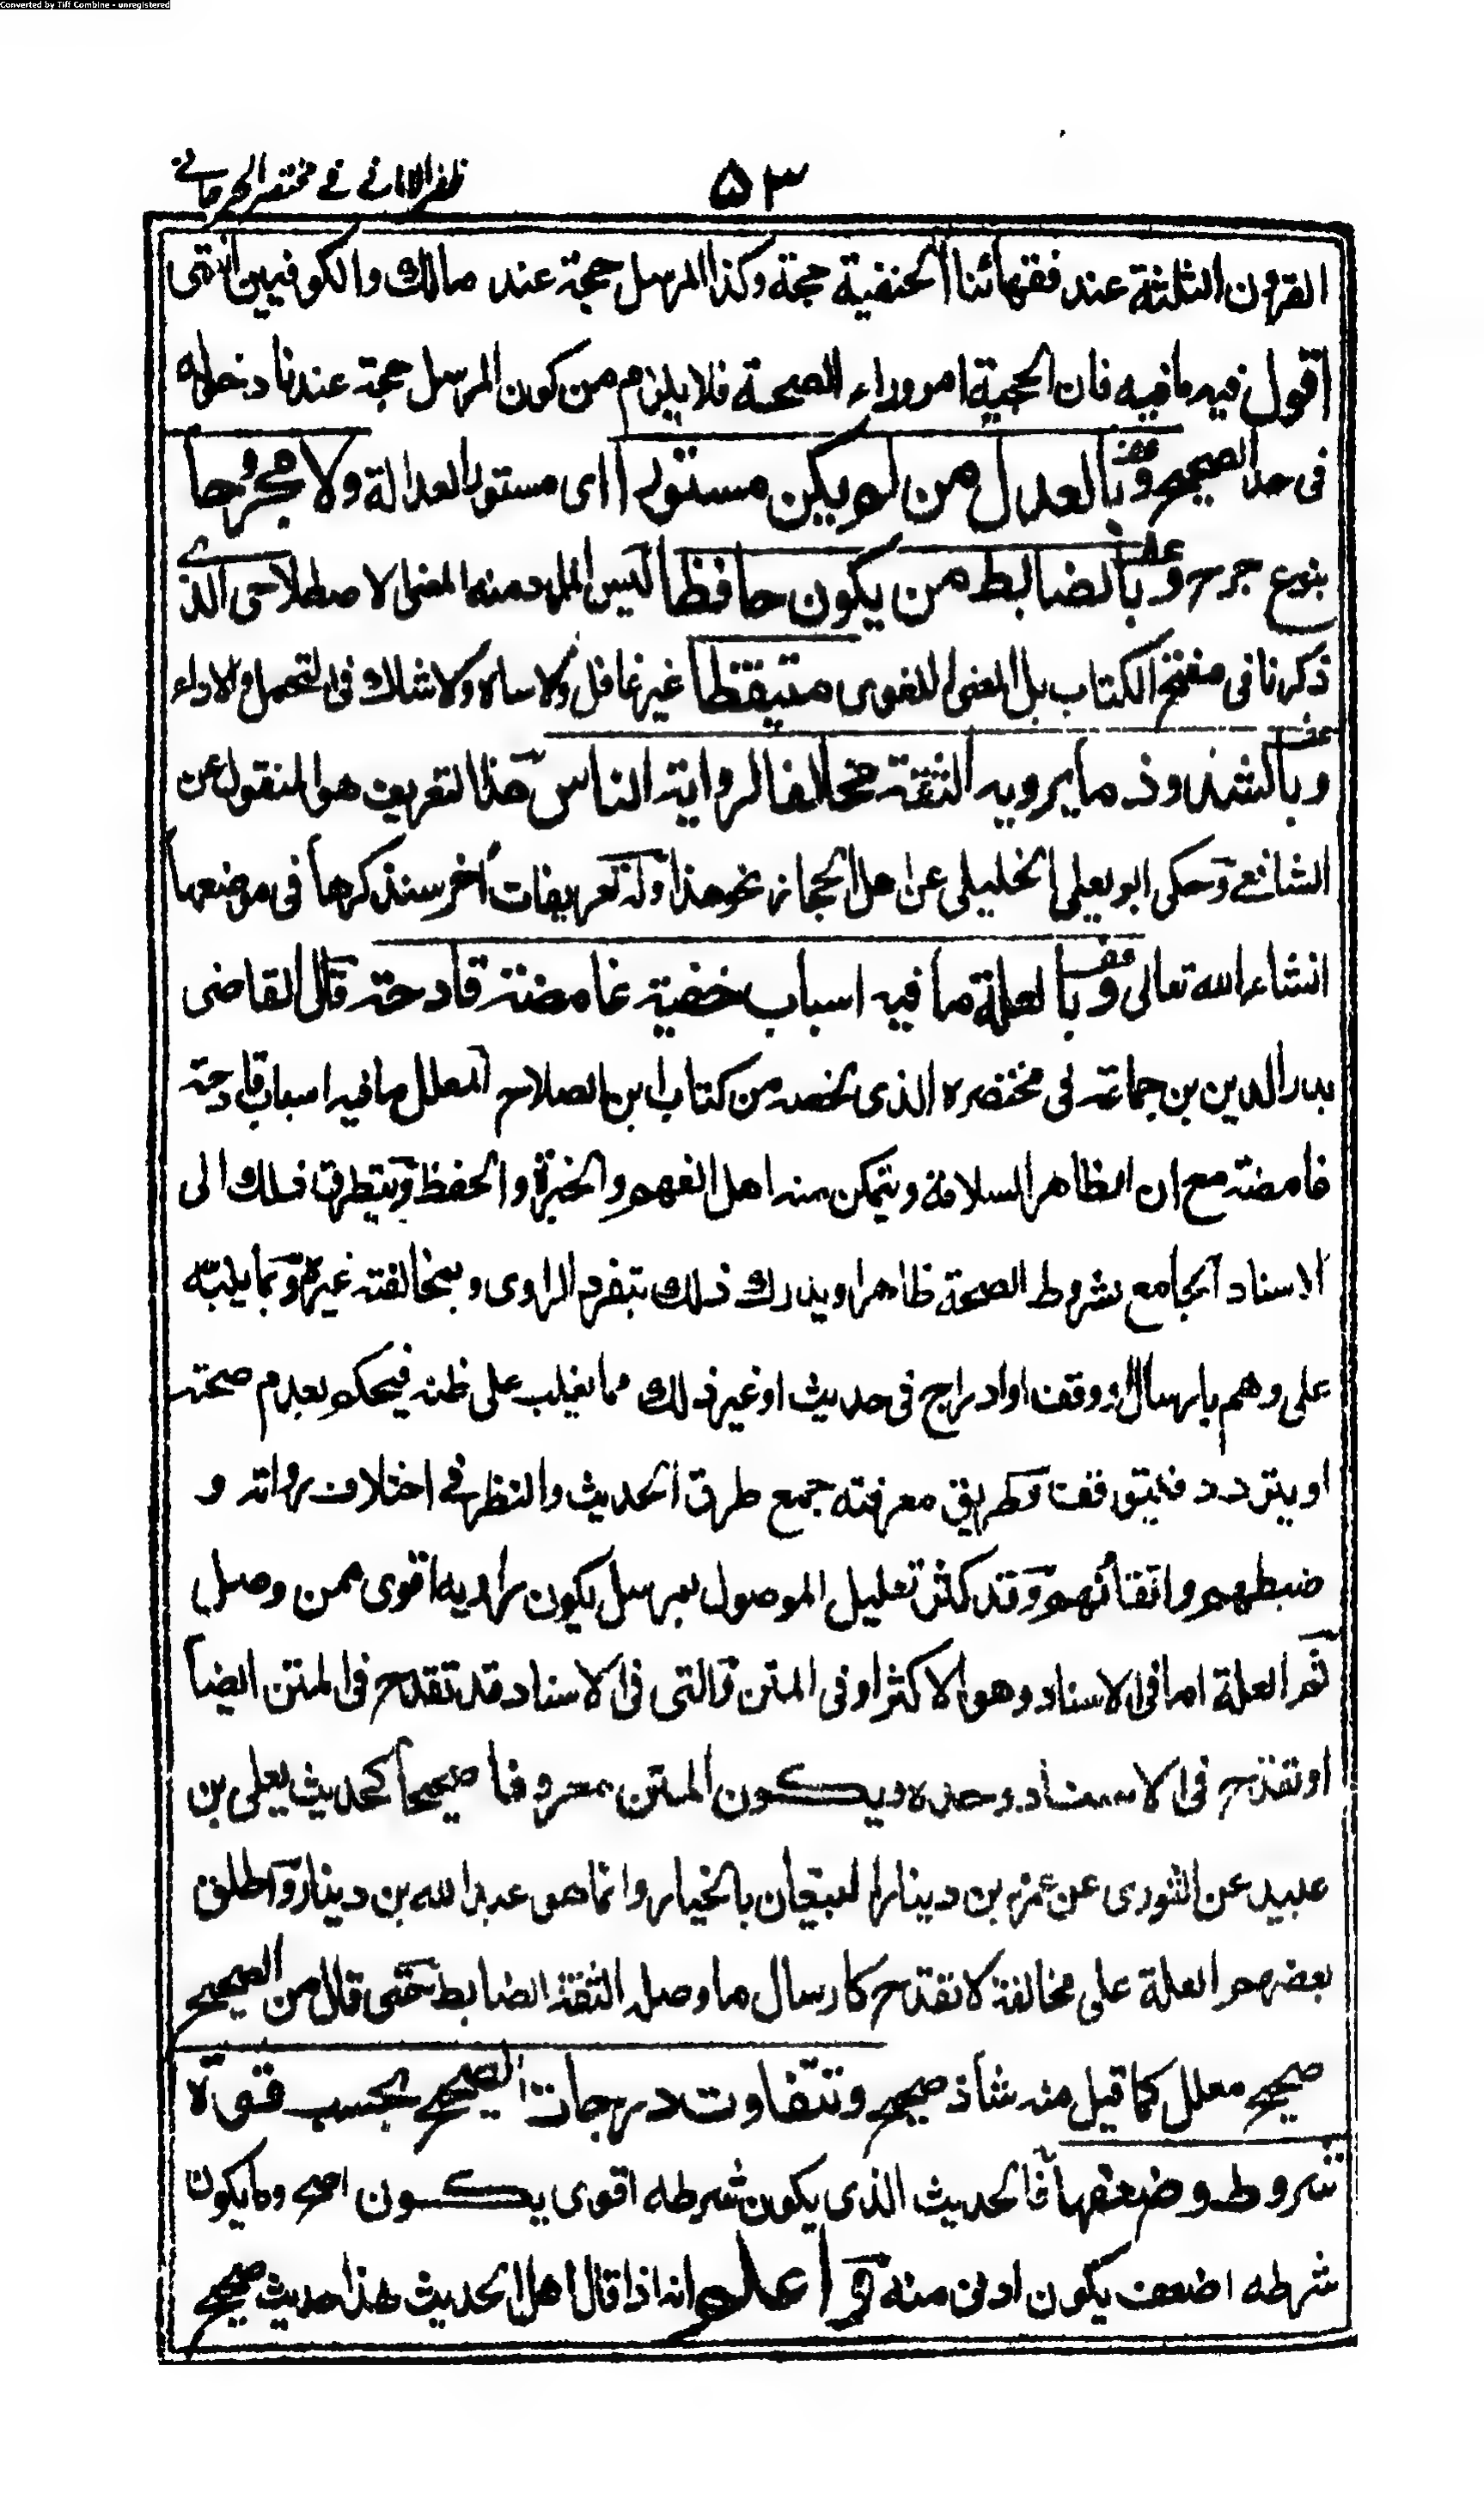 Converted by Tiff Combine - unregistered
ظفر الامانے فے مختصر الجرجانے
۵۳
القرون الثلثة عند فقهائنا الحنفية حجة وكذا المرسل حجة عند مالك والكوفيين انتهى
اقول فيه مافيه فان الحجية امر وراء الصحة فلا يلزم من كون المرسل حجة عندنا دخوله
فى حد الصحيح ونعنى بالعدل من لم يكن مستورا اى مستور العدالة ولا مجروحا
بنوع جرح ونعنى بالضابط من يكون حافظا ليس المراد منه المعنى الاصطلاحى الذے
ذكرنا فى مفتتح الكتاب بل المعنى اللغوى متيقظا غير غافل ولا ساه ولا شاك فى التحمل والاداء
ونعنى بالشذوذ ما يرويه الثقة مخالفا لرواية الناس هذا التعريف هو المنقول عن
الشافعے وحكى ابو يعلى الخليلى عن اهل الحجاز نحو هذا وله تعريفات أخر سنذكرها فى موضعها
انشاء الله تعالى ونعنى بالعلة ما فيه اسباب خفية غامضة قادحة قال القاضى
بدر الدين بن جماعة فى مختصره الذى لخصه من كتاب ابن الصلاح المعلل ما فيه اسباب قادحة
غامضة مع ان الظاهر السلامة ويتمكن منه اهل الفهم والخبرة والحفظ ويتطرق ذلك الى
الاسناد الجامع شروط الصحة ظاهرا ويدرك ذلك بتفرد الراوى وبمخالفته غيره وبما يلبته
على وهم بارسال او وقف او ادراج فى حديث او غير ذلك مما يغلب على ظنه فيحكم بعدم صحته
او يتردد فيتوقف وطريق معرفته جمع طرق الحديث والنظر فے اختلاف رواته و
ضبطهم واتقانهم وقد كثر تعليل الموصول بمرسل يكون راويه اقوى ممن وصل
ثم العلة اما فى الاسناد وهو الاكثر او فى المتن والتى فى الاسناد قد تقدح فى المتن ايضا
او تقدح فى الاسناد وحده ويكون المتن معروفا صحيحا كحديث يعلى بن
عبيد عن الثورى عن عمرو بن دينار البيعان بالخيار وانما هو عبد الله بن دينار واطلق
بعضهم العلة على مخالفة لا تقدح كارسال ما وصله الثقة الضابط حتى قال من الصحيح
صحيح معلل كما قيل منه شاذ صحيح وتتفاوت درجات الصحيح بحسب قوة
شروطه وضعفها فالحديث الذى يكون شرطه اقوى يكون اصح وما يكون
شرطه اضعف يكون ادون منه واعلم انه اذا قال اهل الحديث هذا حديث صحيح